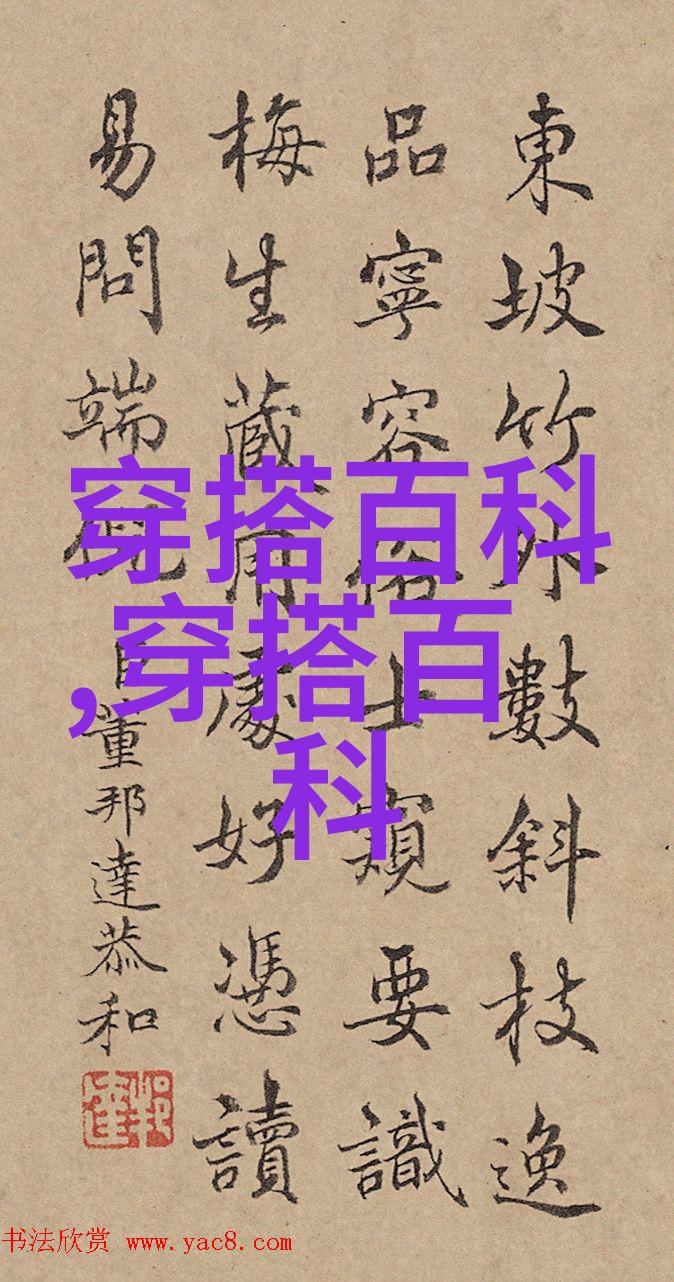 東坡竹外數斜枝逸
品寧容俗士窺要識
梅生藏用處好憑讀
易問端
臣董邦達恭和
穿搭百科
,穿搭百
科
书法欣赏 www.yac8.com